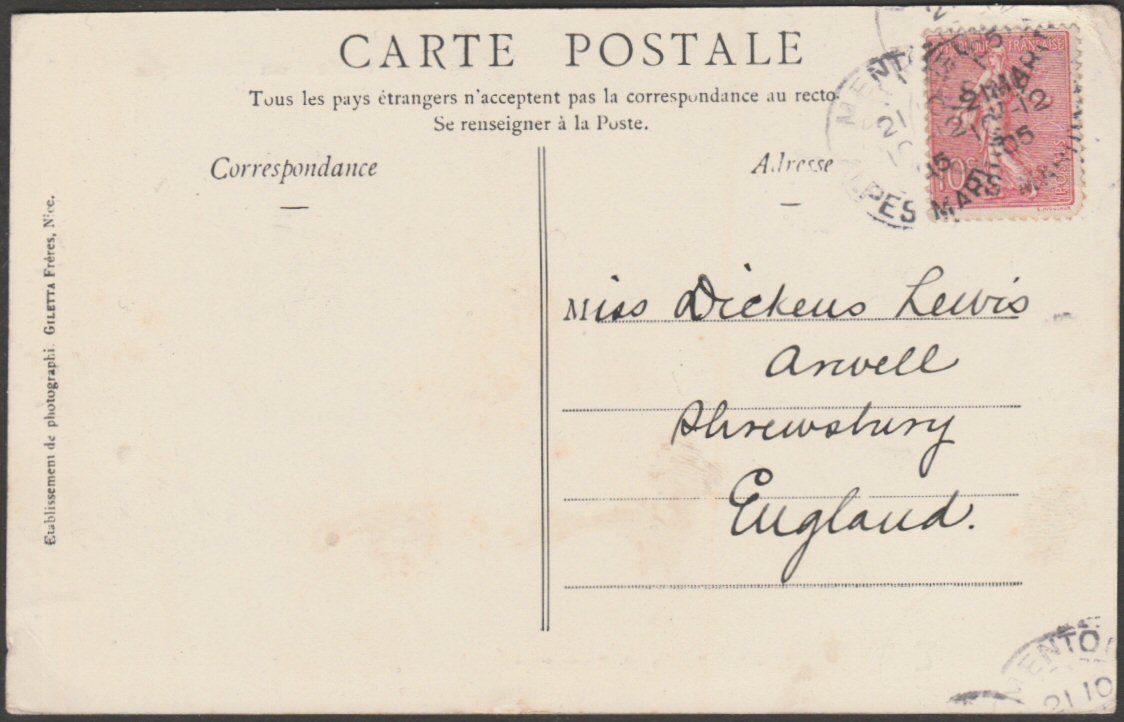 CARTE POSTALE
Tous les pays étrangers n'acceptent pas la correspondance au recto
Se renseigner à la Poste.
Correspondance
Adresse
MENTO
21
ALPES MAR
FRANÇAISE
21 MARS
12
05
10
POSTES
Miss Dickens Lewis
Arwell
Shrewsbury
England.
Etablissement de photographi. GILETTA Frères, Nice.
MENTO
21 10